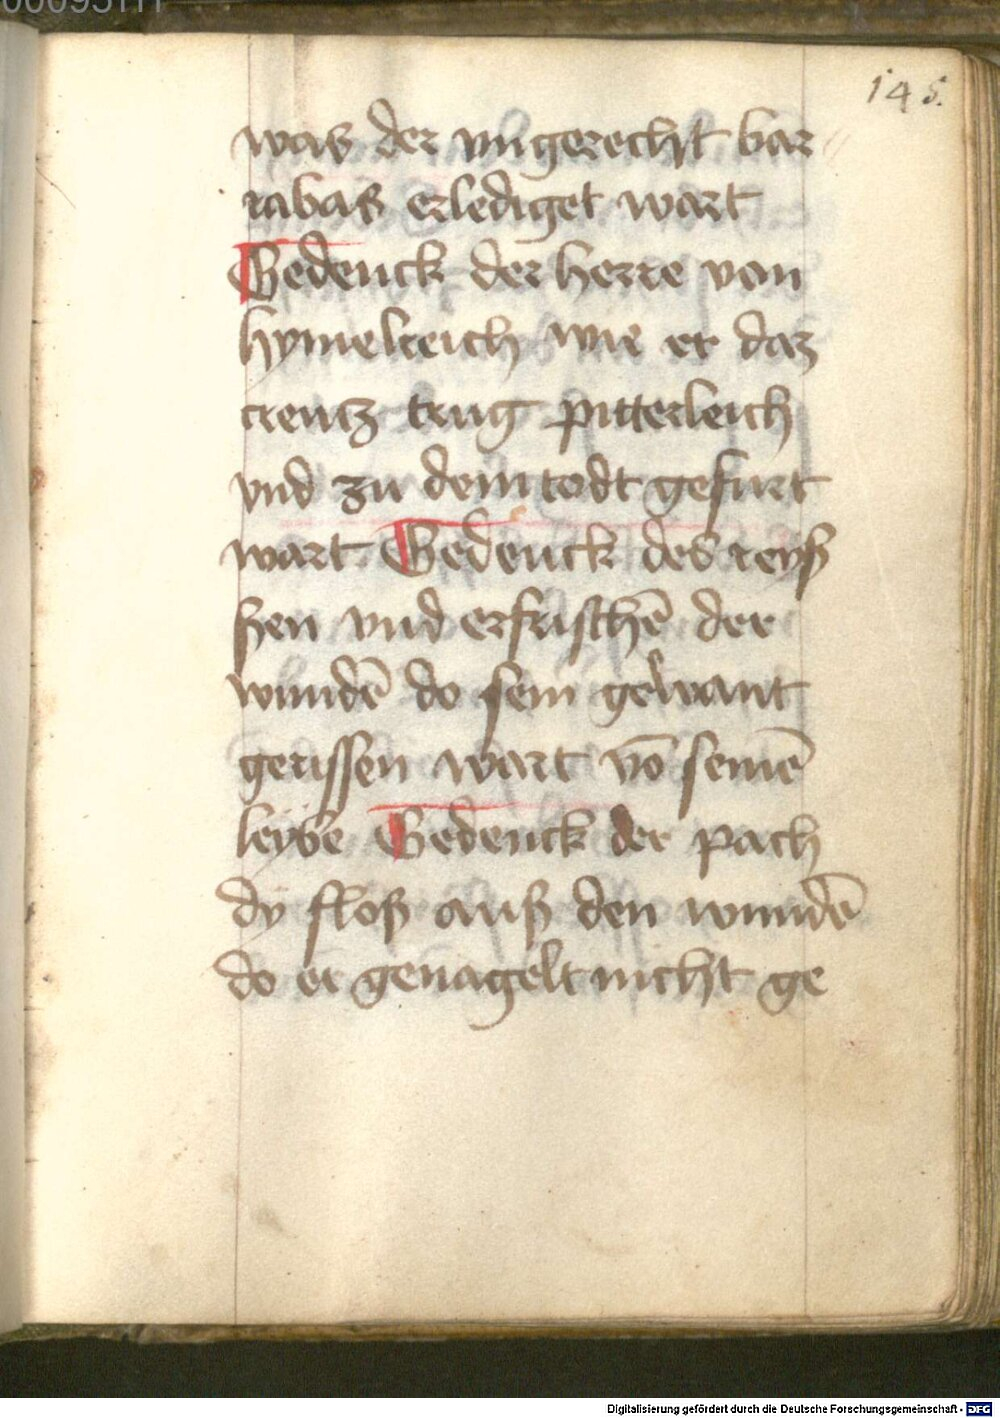 145.
was der vngerecht bar
rabas erlediget wart
Gedenck der herre von
hymelreich wie er daz
creucz trug pitterleich
vnd zu dem todt gefurt
wart Gedenck des reyß
ßen vnd erfrischē der
wundē do sein gewant
gerissen wart vō seinē
leybe Gedenck der pach
dy floß auß den wundē
do er genagelt nicht ge
Digitalisierung gefördert durch die Deutsche Forschungsgemeinschaft - DFG